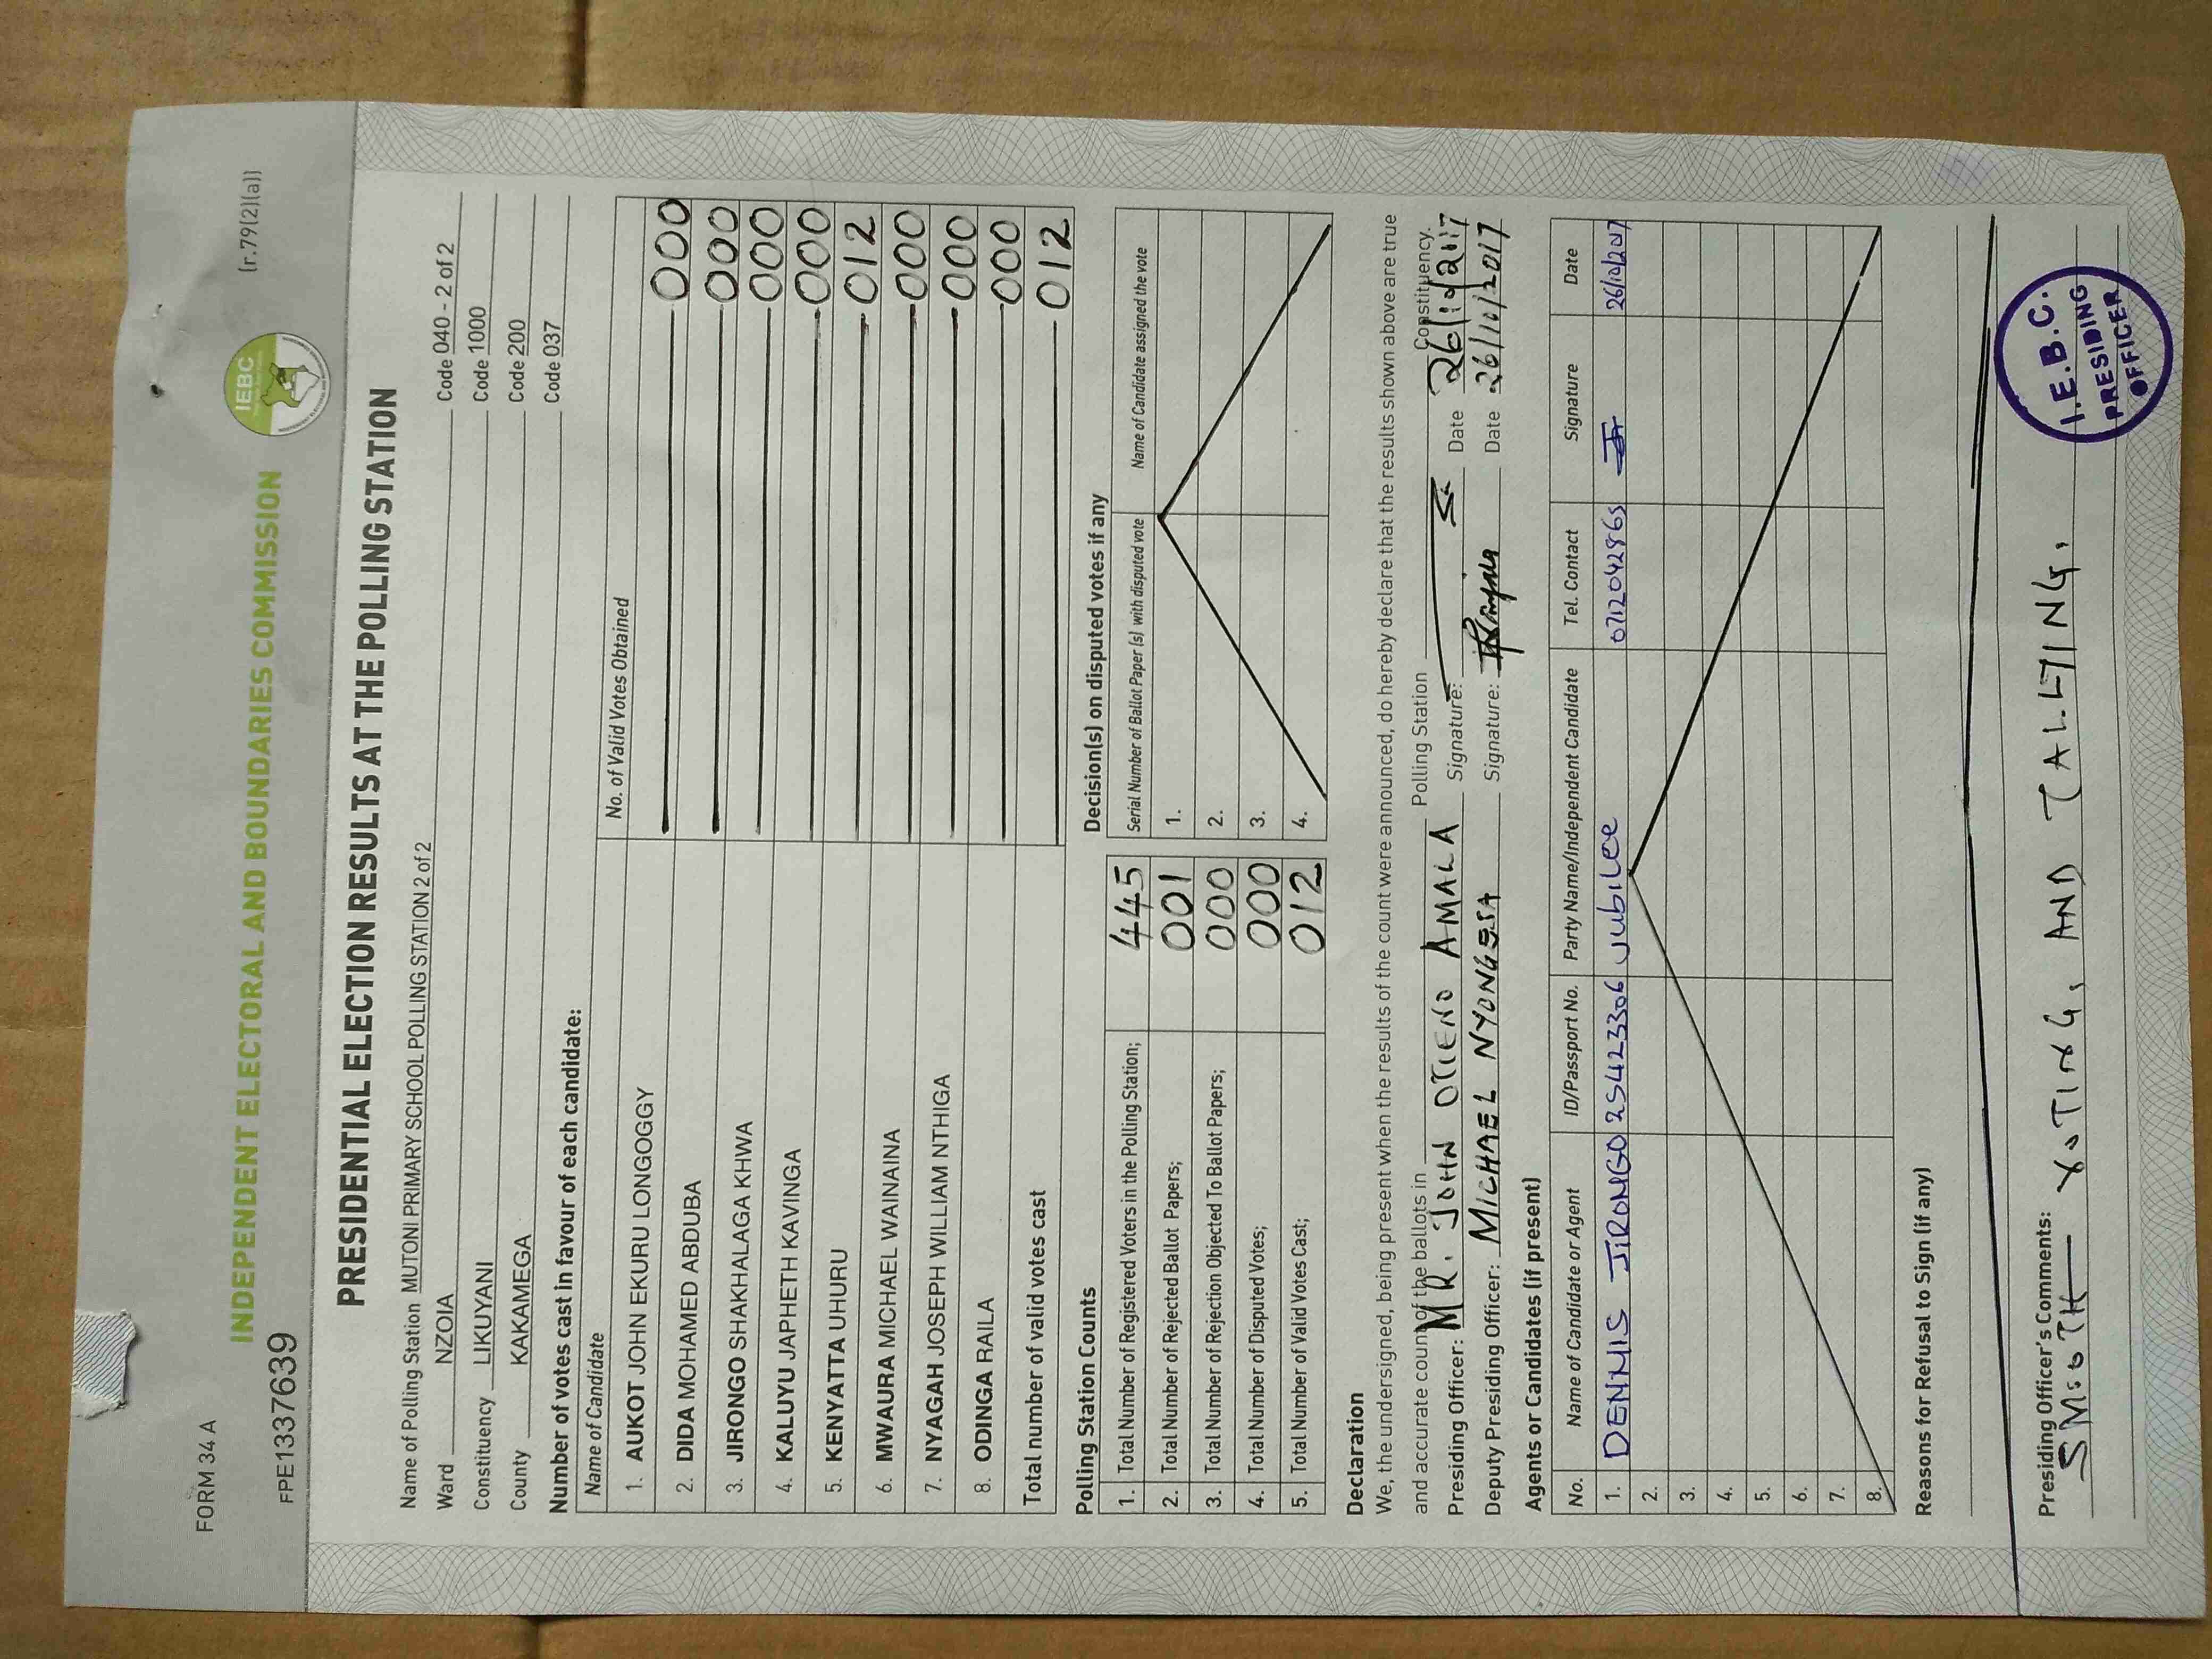 FORM 34 A
(r.79(2)(a))
INDEPENDENT ELECTORAL AND BOUNDARIES COMMISSION
IEBC
FPE1337639
PRESIDENTIAL ELECTION RESULTS AT THE POLLING STATION
Name of Polling Station MUTONI PRIMARY SCHOOL POLLING STATION 2 of 2
Ward NZOIA Code 040 - 2 of 2
Constituency LIKUYANI Code 1000
County KAKAMEGA Code 200
Code 037
Number of votes cast in favour of each candidate:
Name of Candidate No. of Valid Votes Obtained
1. AUKOT JOHN EKURU LONGOGGY 000
2. DIDA MOHAMED ABDUBA 000
3. JIRONGO SHAKHALAGA KHWA 000
4. KALUYU JAPHETH KAVINGA 000
5. KENYATTA UHURU 012
6. MWAURA MICHAEL WAINAINA 000
7. NYAGAH JOSEPH WILLIAM NTHIGA 000
8. ODINGA RAILA 000
Total number of valid votes cast 012
Polling Station Counts
1. Total Number of Registered Voters in the Polling Station; 445
2. Total Number of Rejected Ballot Papers; 001
3. Total Number of Rejection Objected To Ballot Papers; 000
4. Total Number of Disputed Votes; 000
5. Total Number of Valid Votes Cast; 012
Decision(s) on disputed votes if any
Serial Number of Ballot Paper (s) with disputed vote Name of Candidate assigned the vote
1.
2.
3.
4.
Declaration
We, the undersigned, being present when the results of the count were announced, do hereby declare that the results shown above are true
and accurate count of the ballots in Polling Station Constituency.
Presiding Officer: MR. JOHN OTIENO AMALA Signature: Date 26/10/2017
Deputy Presiding Officer: MICHAEL NYONGESA Signature: Date 26/10/2017
Agents or Candidates (if present)
No. Name of Candidate or Agent ID/Passport No. Party Name/Independent Candidate Tel. Contact Signature Date
1. DENNIS JIRONGO 25423306 JubiLee 0712042865 26/10/2017
2.
3.
4.
5.
6.
7.
8.
Reasons for Refusal to Sign (if any)
Presiding Officer's Comments:
SMOOTH VOTING, AND TALLYING.
I.E.B.C.
PRESIDING
OFFICER